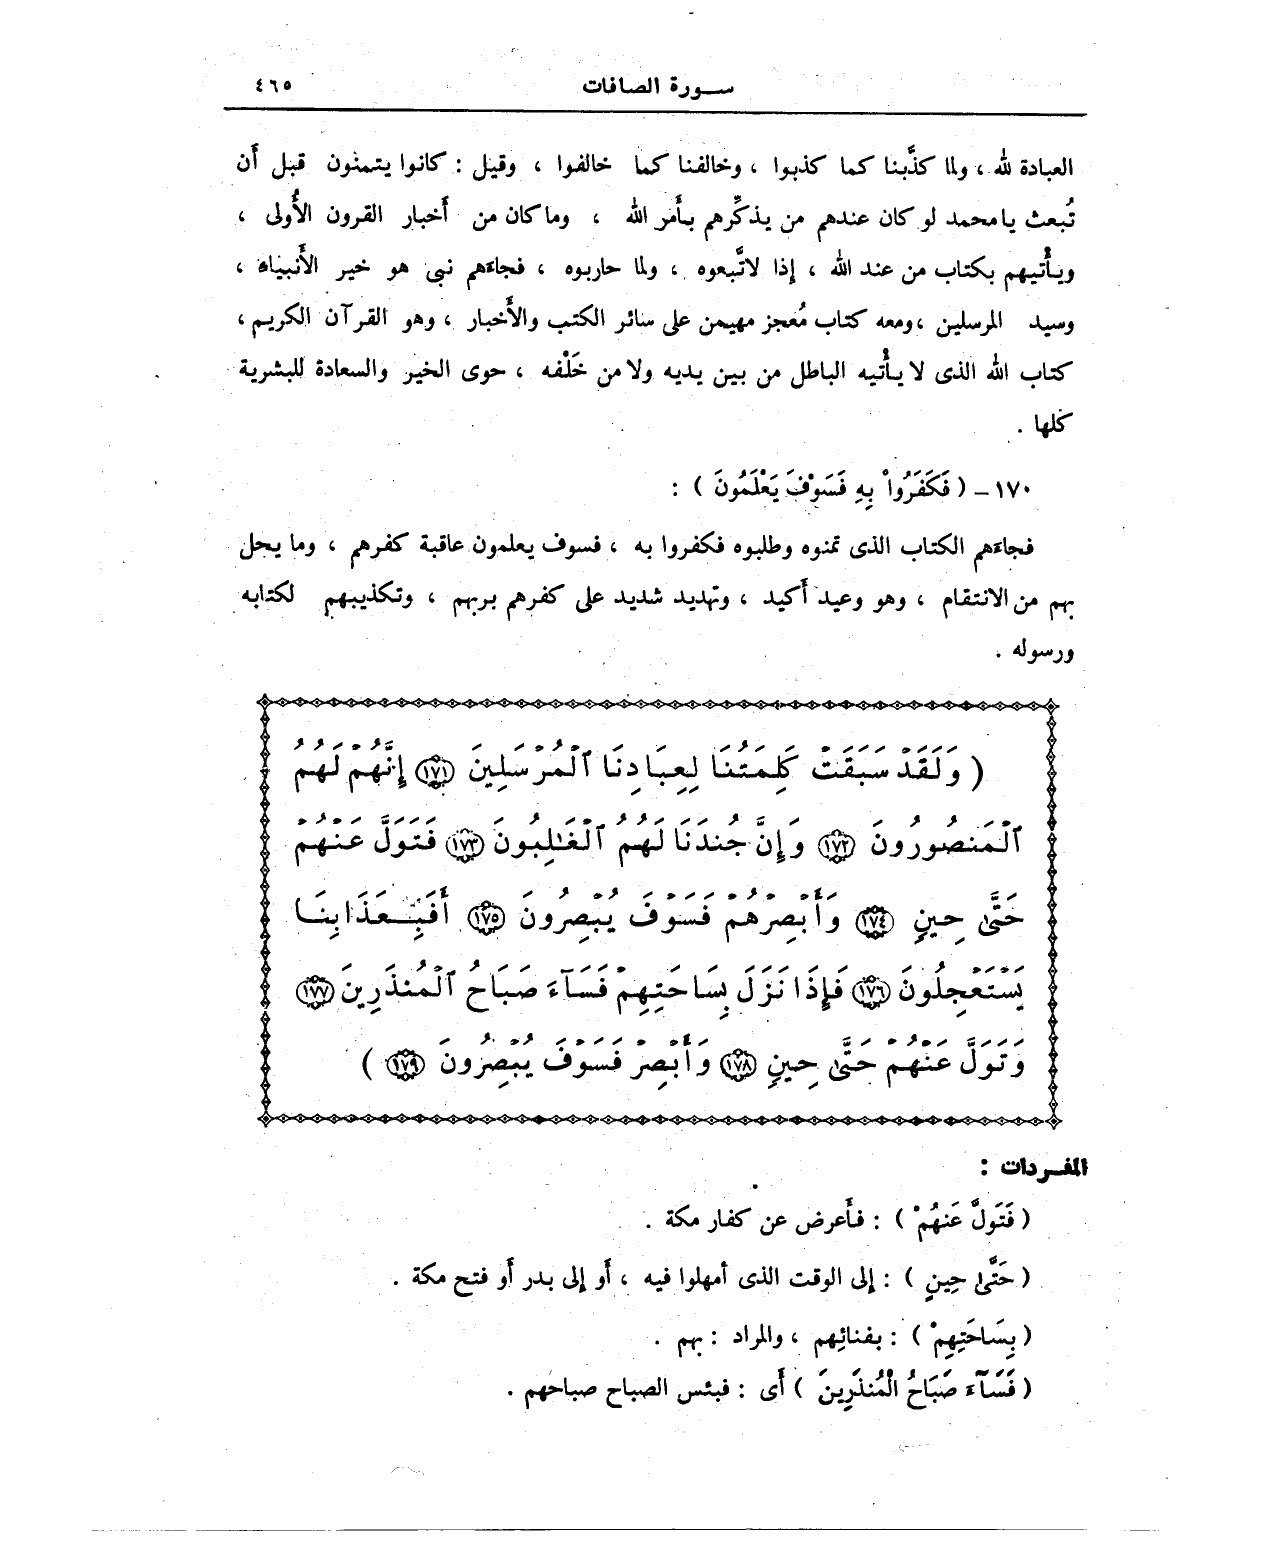 سورة الصافات ٤٦٥
العبادة لله ، ولما كذَّبنا كما كذبوا ، وخالفنا كما خالفوا ، وقيل : كانوا يتمنون قبل أَن
تُبعث يا محمد لو كان عندهم من يذكِّرهم بأَمر الله ، وما كان من أَخبار القرون الأُولى ،
ويأْتيهم بكتاب من عند الله ، إذا لاتَّبعوه ، ولما حاربوه ، فجاءهم نبى هو خير الأَنبياء ،
وسيد المرسلين ، ومعه كتاب مُعجز مهيمن على سائر الكتب والأَخبار ، وهو القرآن الكريم ،
كتاب الله الذى لا يأْتيه الباطل من بين يديه ولا من خَلْفه ، حوى الخير والسعادة للبشرية
كلها .
١٧٠ - ( فَكَفَرُوا۟ بِهِ فَسَوْفَ يَعْلَمُونَ ) :
فجاءهم الكتاب الذى تمنوه وطلبوه فكفروا به ، فسوف يعلمون عاقبة كفرهم ، وما يحل
بهم من الانتقام ، وهو وعيد أَكيد ، وتهديد شديد على كفرهم بربهم ، وتكذيبهم لكتابه
ورسوله .
( وَلَقَدْ سَبَقَتْ كَلِمَتُنَا لِعِبَادِنَا ٱلْمُرْسَلِينَ ١٧١ إِنَّهُمْ لَهُمُ
ٱلْمَنصُورُونَ ١٧٢ وَإِنَّ جُندَنَا لَهُمُ ٱلْغَـٰلِبُونَ ١٧٣ فَتَوَلَّ عَنْهُمْ
حَتَّىٰ حِينٍ ١٧٤ وَأَبْصِرْهُمْ فَسَوْفَ يُبْصِرُونَ ١٧٥ أَفَبِعَذَابِنَا
يَسْتَعْجِلُونَ ١٧٦ فَإِذَا نَزَلَ بِسَاحَتِهِمْ فَسَآءَ صَبَاحُ ٱلْمُنذَرِينَ ١٧٧
وَتَوَلَّ عَنْهُمْ حَتَّىٰ حِينٍ ١٧٨ وَأَبْصِرْ فَسَوْفَ يُبْصِرُونَ ١٧٩ )
المفردات :
( فَتَوَلَّ عَنْهُمْ ) : فأَعرض عن كفار مكة .
( حَتَّىٰ حِينٍ ) : إلى الوقت الذى أمهلوا فيه ، أَو إلى بدر أَو فتح مكة .
( بِسَاحَتِهِمْ ) : بفنائِهم ، والمراد : بهم .
( فَسَآءَ صَبَاحُ الْمُنذَرِينَ ) أَى : فبئس الصباح صباحهم .